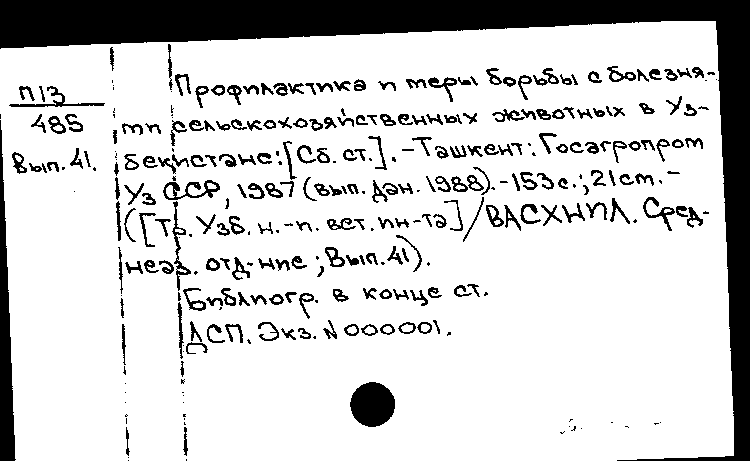 П13
485
Вып. 41.
Профилактика и меры борьбы с болезня-
ми сельскохозяйственных животных в Уз-
бекистане: [Сб. ст.]. - Ташкент: Госагропром
Уз ССР, 1987 (вып. дан. 1988). - 153 с.; 21 см. -
([Тр. Узб. н.-и. вет. ин-та] / ВАСХНИЛ. Сред-
неаз. отд-ние; Вып. 41).
Библиогр. в конце ст.
ДСП. Экз. N 000001.